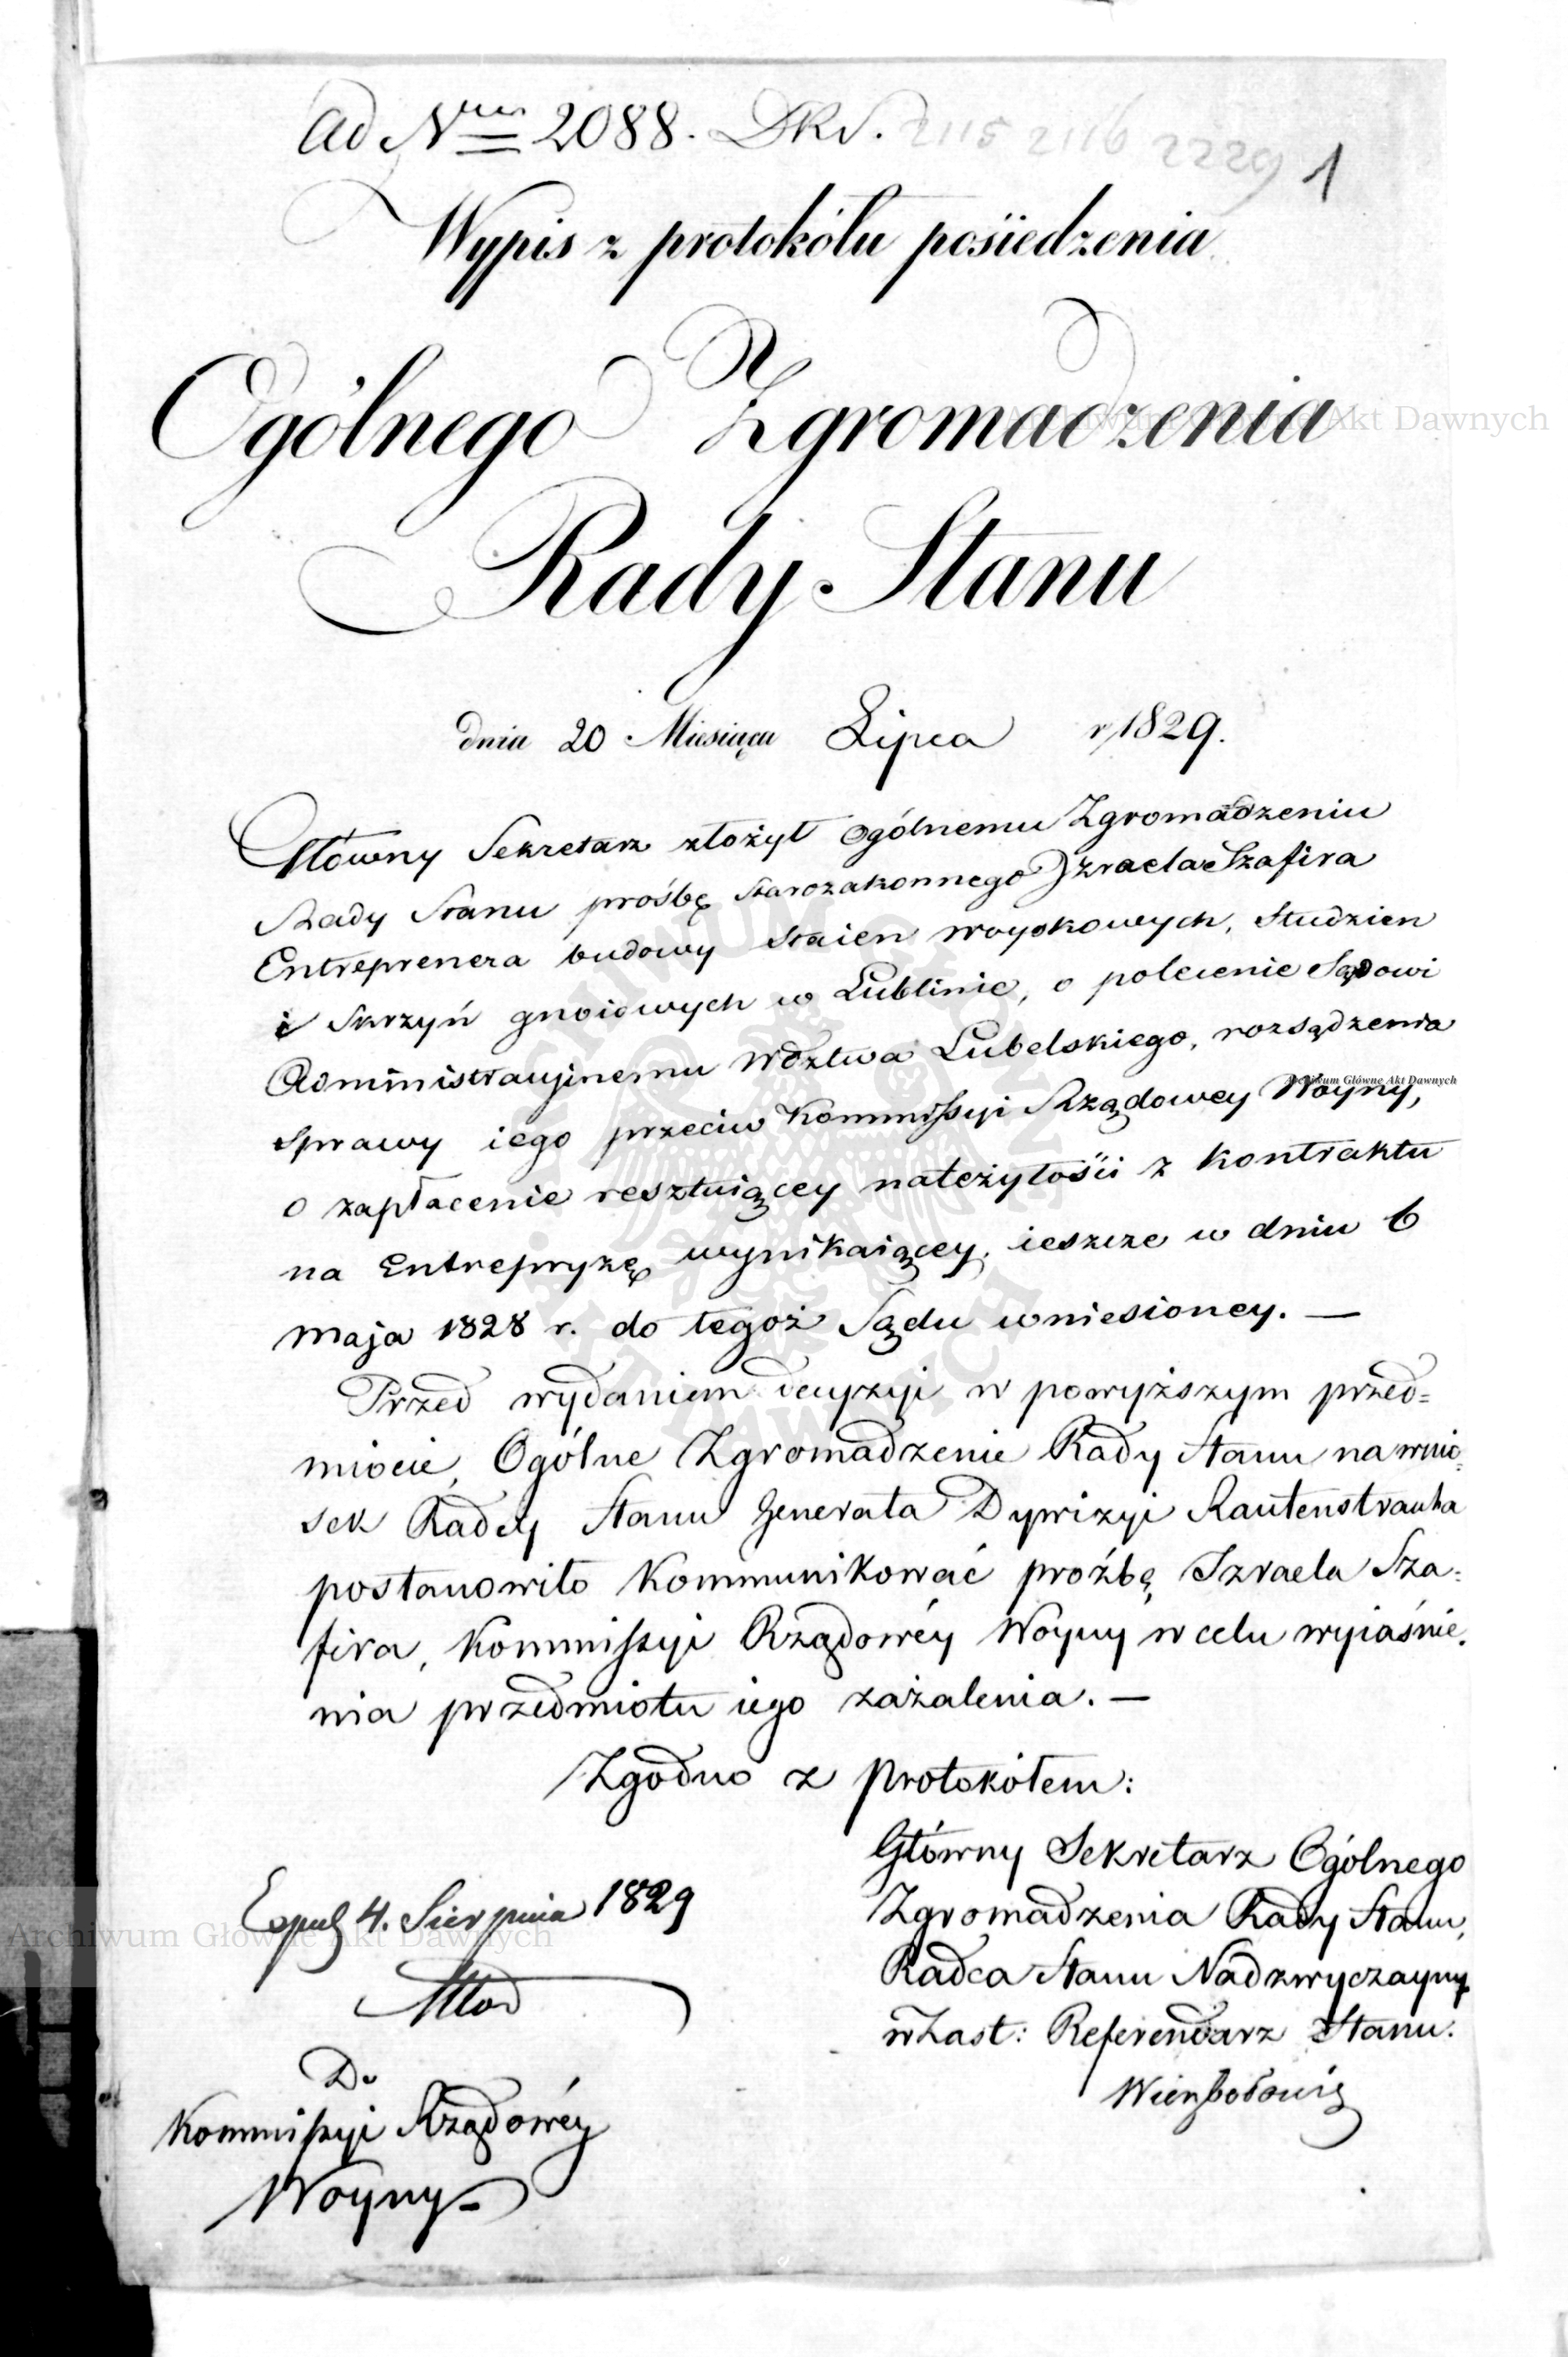 Ad Nrum 2088. DRS. 2115 2116 2229 1
Wypis z protokółu posiedzenia
Ogólnego Zgromadzenia
Archiwum Główne Akt Dawnych
Rady Stanu
dnia 20 Miesiąca Lipca r 1829.
Główny Sekretarz złożył Ogólnemu Zgromadzeniu
Rady Stanu prośbę Starozakonnego Izraela Szafira
Entreprenera budowy Staien woyskowych, Studzien
i Skrzyń gnoiowych w Lublinie, o polecenie Sądowi
Administracyjnemu Wdztwa Lubelskiego, rozsądzenia
Archiwum Główne Akt Dawnych
sprawy iego przeciw Kommissyi Rządowey Woyny,
o zapłacenie resztuiącey należytości z kontraktu
na Entrepryzę wynikaiącey, ieszcze w dniu 6
maja 1828 r. do tegoż Sądu wniesioney. —
Przed wydaniem decyzyi w powyższym przed=
miocie, Ogólne Zgromadzenie Rady Stanu na wnio=
sek Radcy Stanu Generała Dywizyi Rautenstraucha
postanowiło Kommunikować proźbę Izraela Sza=
fira, Kommissyi Rządowéy Woyny w celu wyiaśnie=
nia przedmiotu iego zażalenia. —
Zgodno z Protokółem:
Główny Sekretarz Ogólnego
Zgromadzenia Rady Stanu,
Radca Stanu Nadzwyczayny
w Zast: Referendarz Stanu.
4. Sierpnia 1829
Archiwum Główne Akt Dawnych
Do
Kommissyi Rządowéy
Woyny